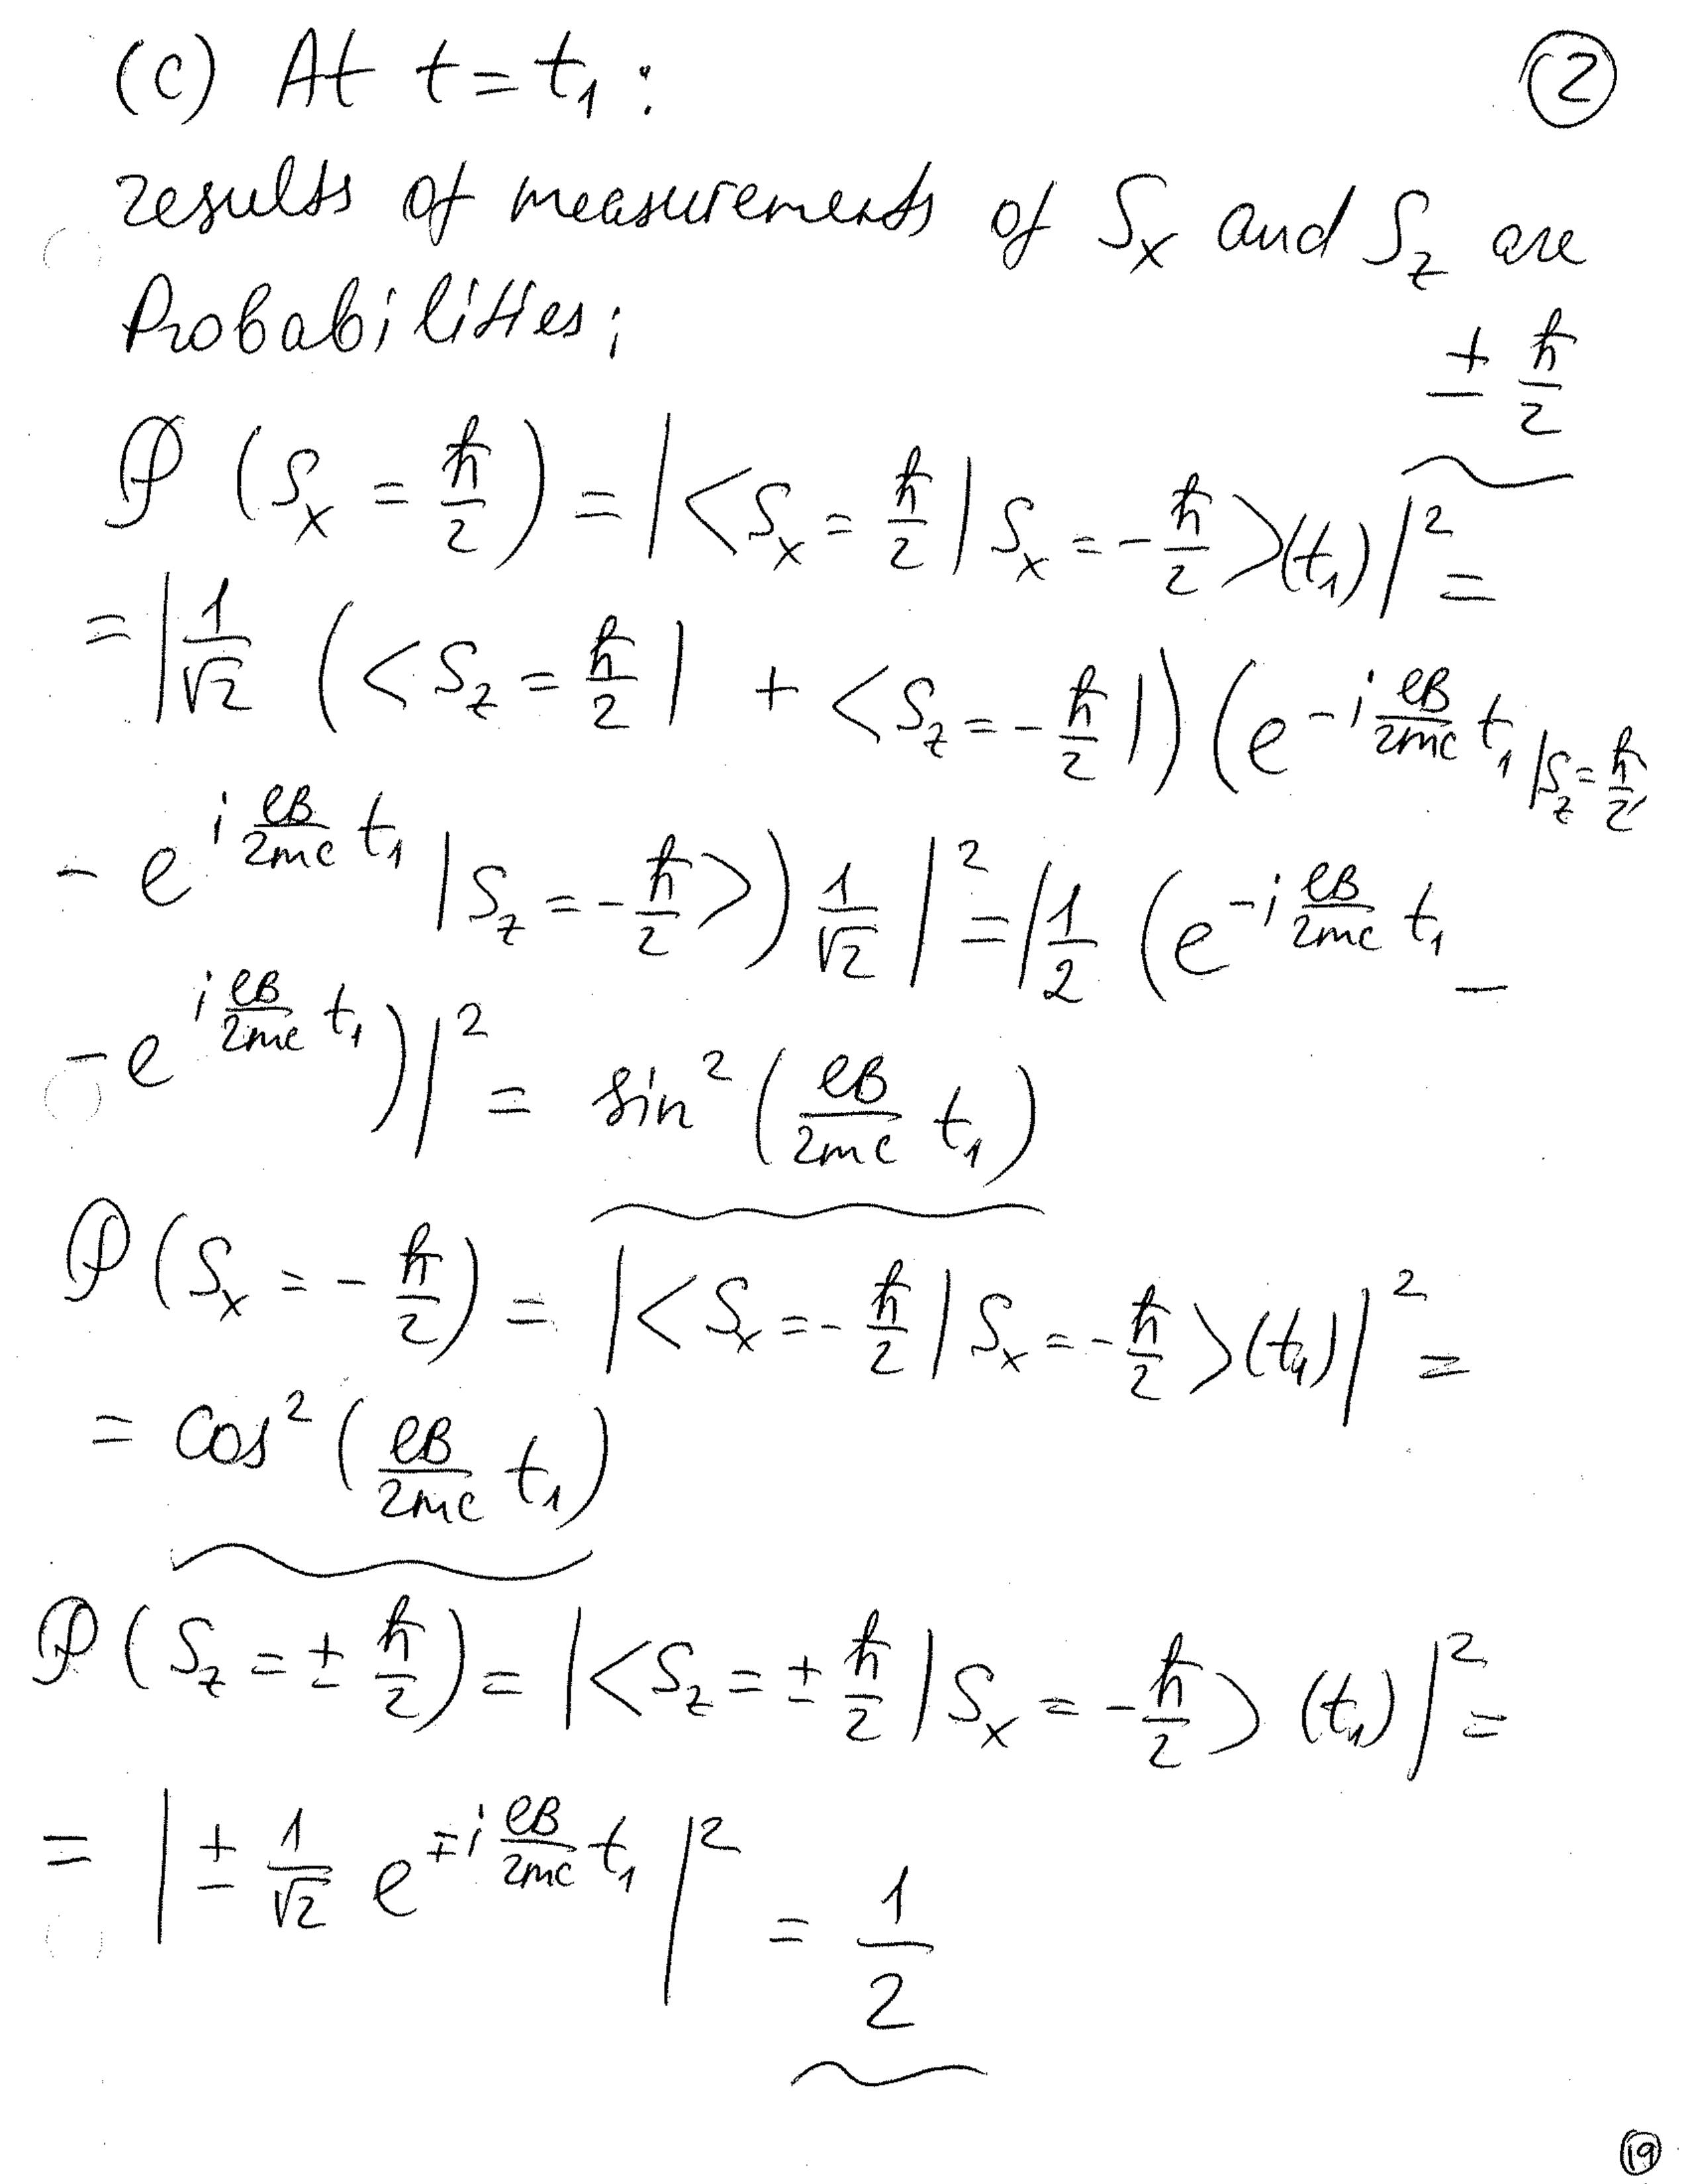 (c) At t = t₁: ②
results of measurements of Sₓ and S_z are
Probabilities; ± ħ/2
P (Sₓ = ħ/2) = |<Sₓ = ħ/2 | Sₓ = -ħ/2>(t₁)|² =
= |1/√2 (<S_z = ħ/2| + <S_z = -ħ/2|) (e^{-i eB/2mc t₁} |S_z = ħ/2
- e^{i eB/2mc t₁} |S_z = -ħ/2>) 1/√2 |² = |1/2 (e^{-i eB/2mc t₁} -
- e^{i eB/2mc t₁})|² = sin² (eB/2mc t₁)
P (Sₓ = -ħ/2) = |<Sₓ = -ħ/2 | Sₓ = -ħ/2>(t₁)|² =
= cos² (eB/2mc t₁)
P (S_z = ± ħ/2) = |<S_z = ± ħ/2 | Sₓ = -ħ/2> (t₁)|² =
= | ± 1/√2 e^{∓i eB/2mc t₁} |² = 1/2
⑲